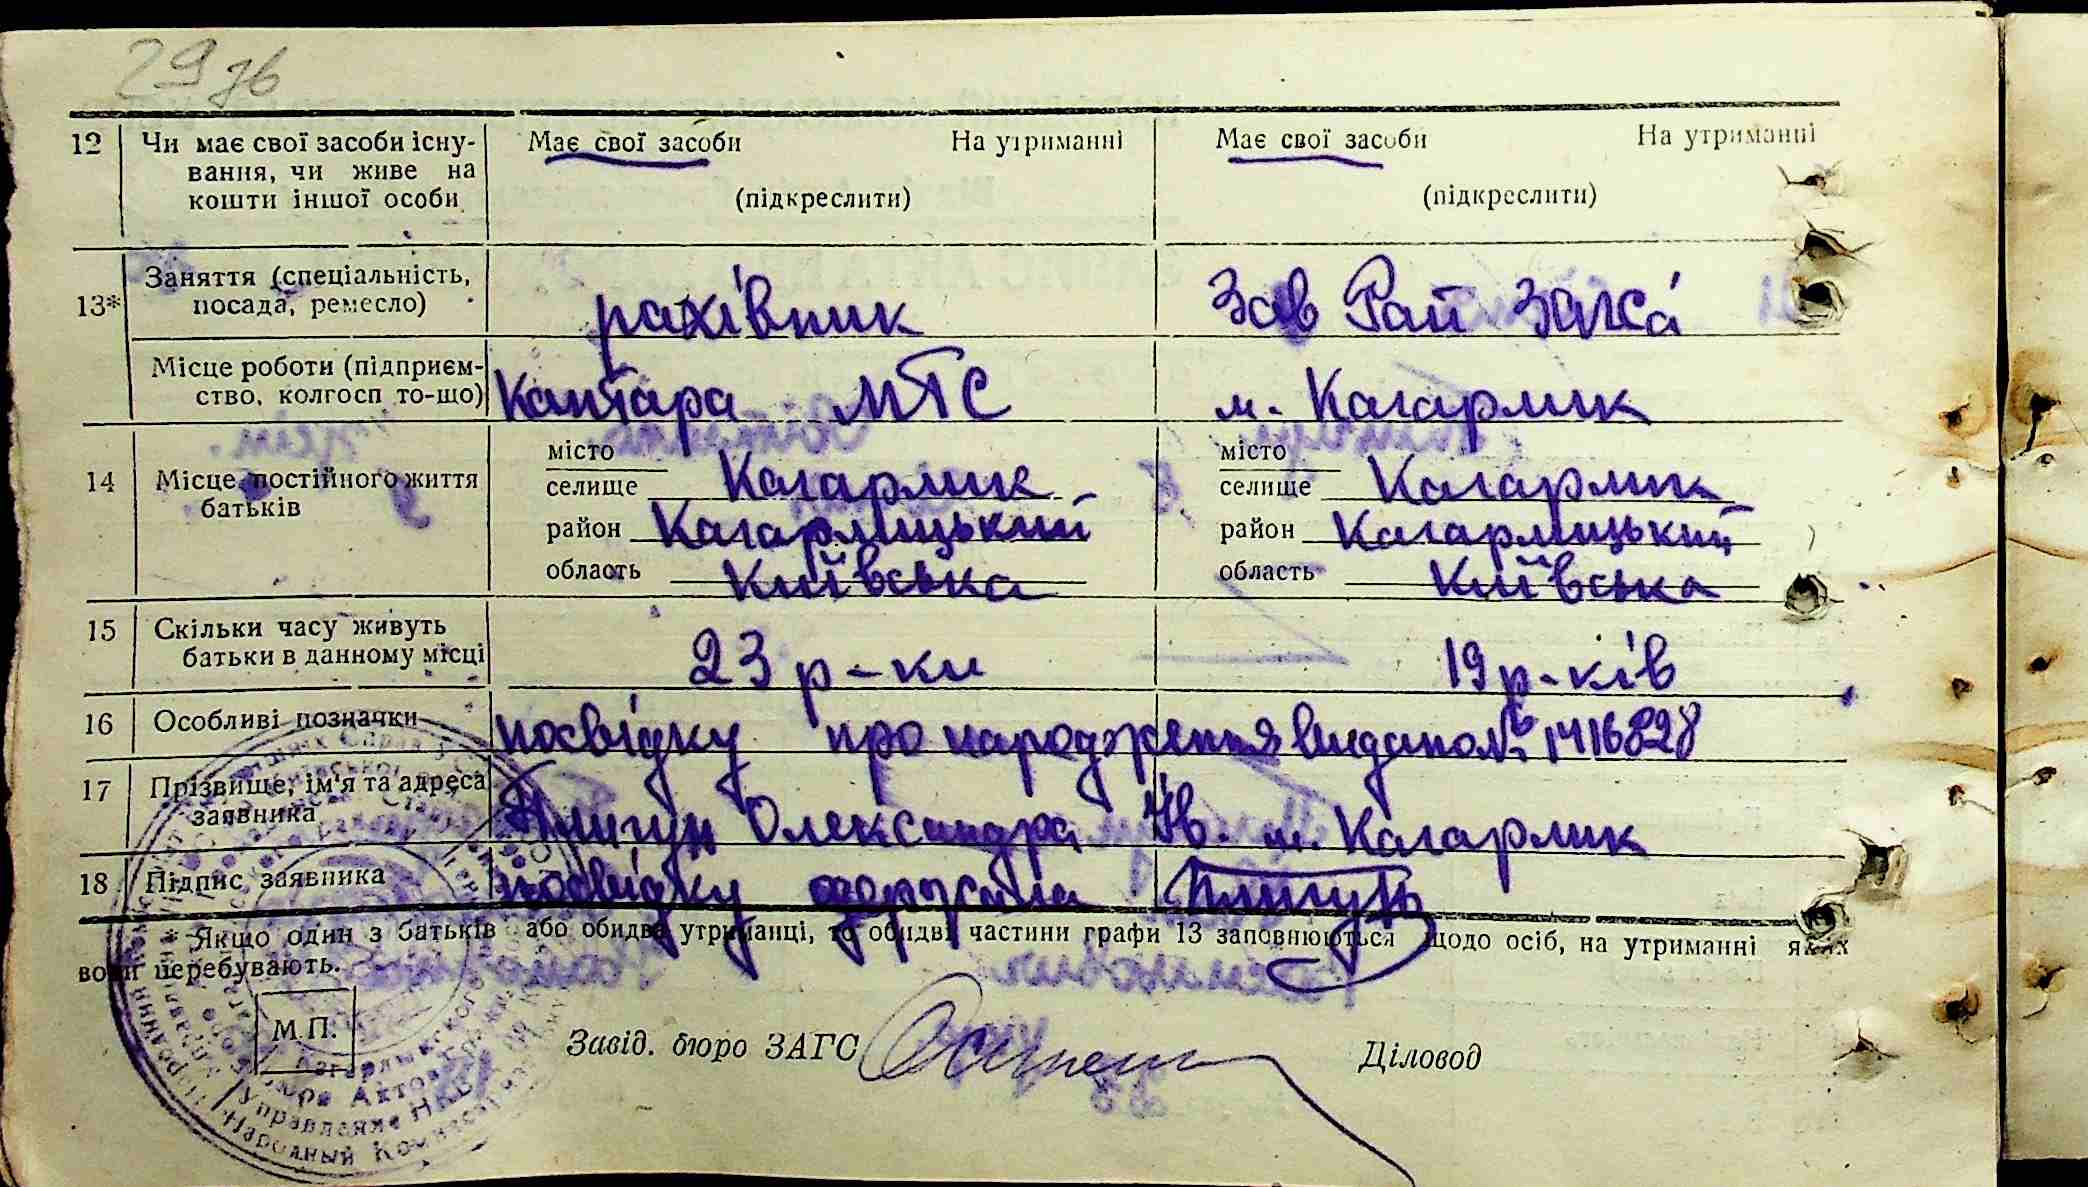 29 зв
12 Чи має свої засоби існу-вання, чи живе на кошти іншої особи Має свої засоби На утриманні (підкреслити) Має свої засоби На утриманні (підкреслити)
13* Заняття (спеціальність, посада, ремесло) рахівник Зав Рай Загса
Місце роботи (підприєм-ство, колгосп то-що) Контара МТС м. Кагарлик
14 Місце постійного життя батьків
місто місто
селище Кагарлик селище Кагарлик
район Кагарлицький район Кагарлицький
область Київська область Київська
15 Скільки часу живуть батьки в данному місці 23 р-ки 19 р-ків
16 Особливі позначки посвідку про народження видано № 1416828
17 Прізвище, ім'я та адреса заявника Плигун Олександра Ів. м. Кагарлик
18 Підпис заявника посвідку одержала Плигун
* Якщо один з батьків або обидва утриманці, то обидві частини графи 13 заповнюються щодо осіб, на утриманні яких
вони перебувають.
М.П.
Завід. бюро ЗАГС Діловод